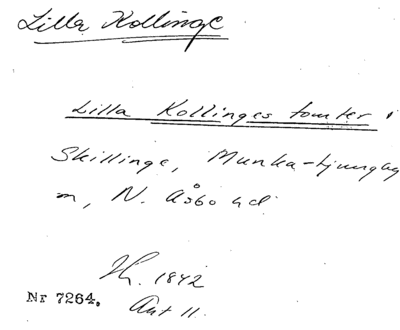 Lilla Kollinge
Lilla Kollinges tomter i
Skillinge, Munka-Ljungby
sn, N. Åsbo hd
1842
Nr 7264.
Akt 11.